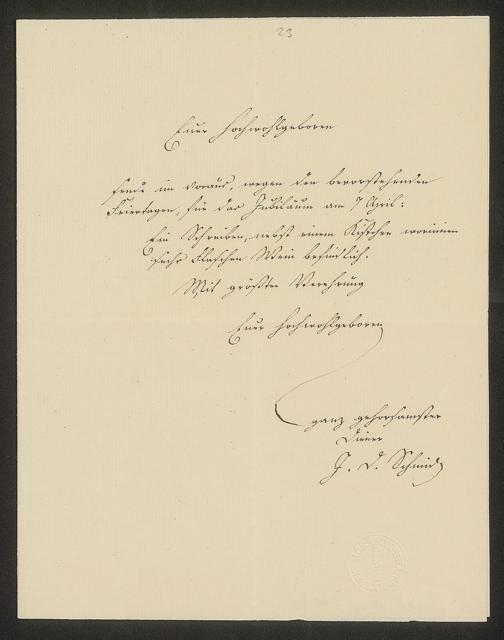 23
Euer Hochwohlgeboren
sende im Voraus, wegen den bevorstehenden
Feiertagen, für das Jubiläum am 7 April:
Ein Schreiben, nebst einem Kistchen worinnen
sechs Flaschen Wein befindlich.
Mit größter Verehrung
Euer Hochwohlgeboren
ganz gehorsamster
Diener
J. D. Schmid